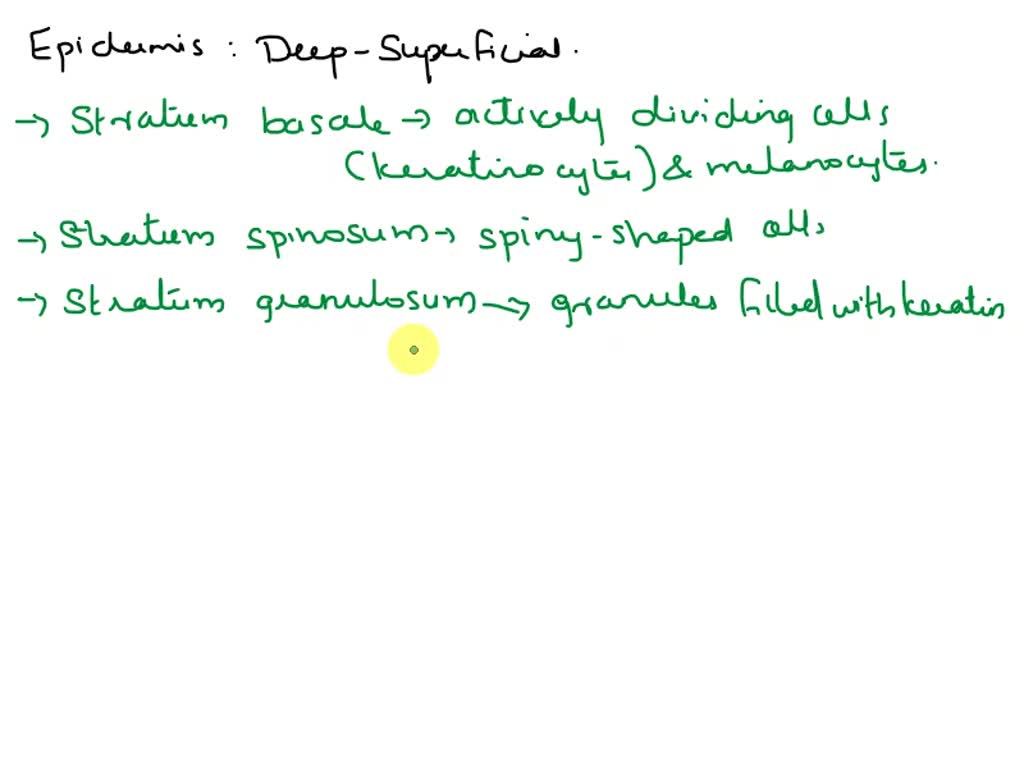 Epidermis : Deep-Superficial.
→ Stratum basale → actively dividing cells
(keratinocytes) & melanocytes.
→ Stratum spinosum → spiny-shaped cells
→ Stratum granulosum → granules filled with keratin